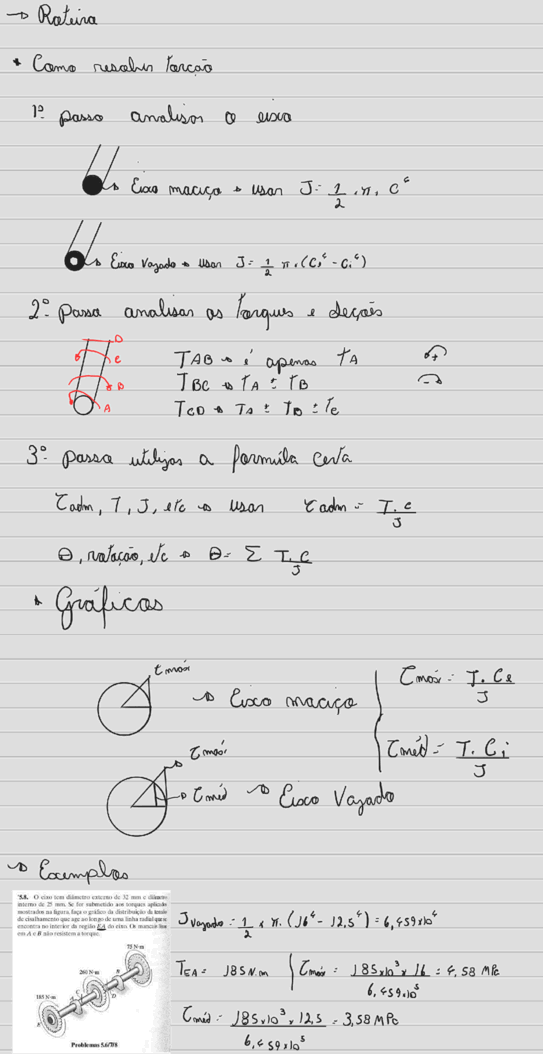 → Roteiro
• Como resolver torção
1º passo analisar o eixo
Eixo maciço → usar J = 1/2 . π . C⁴
Eixo Vazado → usar J = 1/2 π . (Ce⁴ - Ci⁴)
2º passo analisar os torques e seções
D
C
B
A
TAB → é apenas TA +
TBC → TA ± TB -
TCD → TA ± TB ± TC
3º passo utilizar a formúla certa
τadm, T, J, etc → usar τadm = T.c/J
Θ, rotação, etc → Θ = Σ T.C/J
• Gráficos
τmáx
→ Eixo maciço
τmáx = T.Ce/J
τméd = T.Ci/J
τmáx
τméd → Eixo Vazado
→ Exemplos
*5.8. O eixo tem diâmetro externo de 32 mm e diâmetro
interno de 25 mm. Se for submetido aos torques aplicados
mostrados na figura, faça o gráfico da distribuição da tensão
de cisalhamento que age ao longo de uma linha radial que se
encontra no interior da região EA do eixo. Os mancais lisos
em A e B não resistem a torque.
75 N·m
260 N·m
185 N·m
B
D
C
E
Problemas 5.6/7/8
Jvazado = 1/2 x π . (16⁴ - 12,5⁴) = 6,459x10⁴
TEA = 185 N.m
τmáx = 185x10³ x 16 / 6,459.10⁵ = 4,58 MPa
τméd = 185x10³ x 12,5 / 6,459x10⁵ = 3,58 MPa